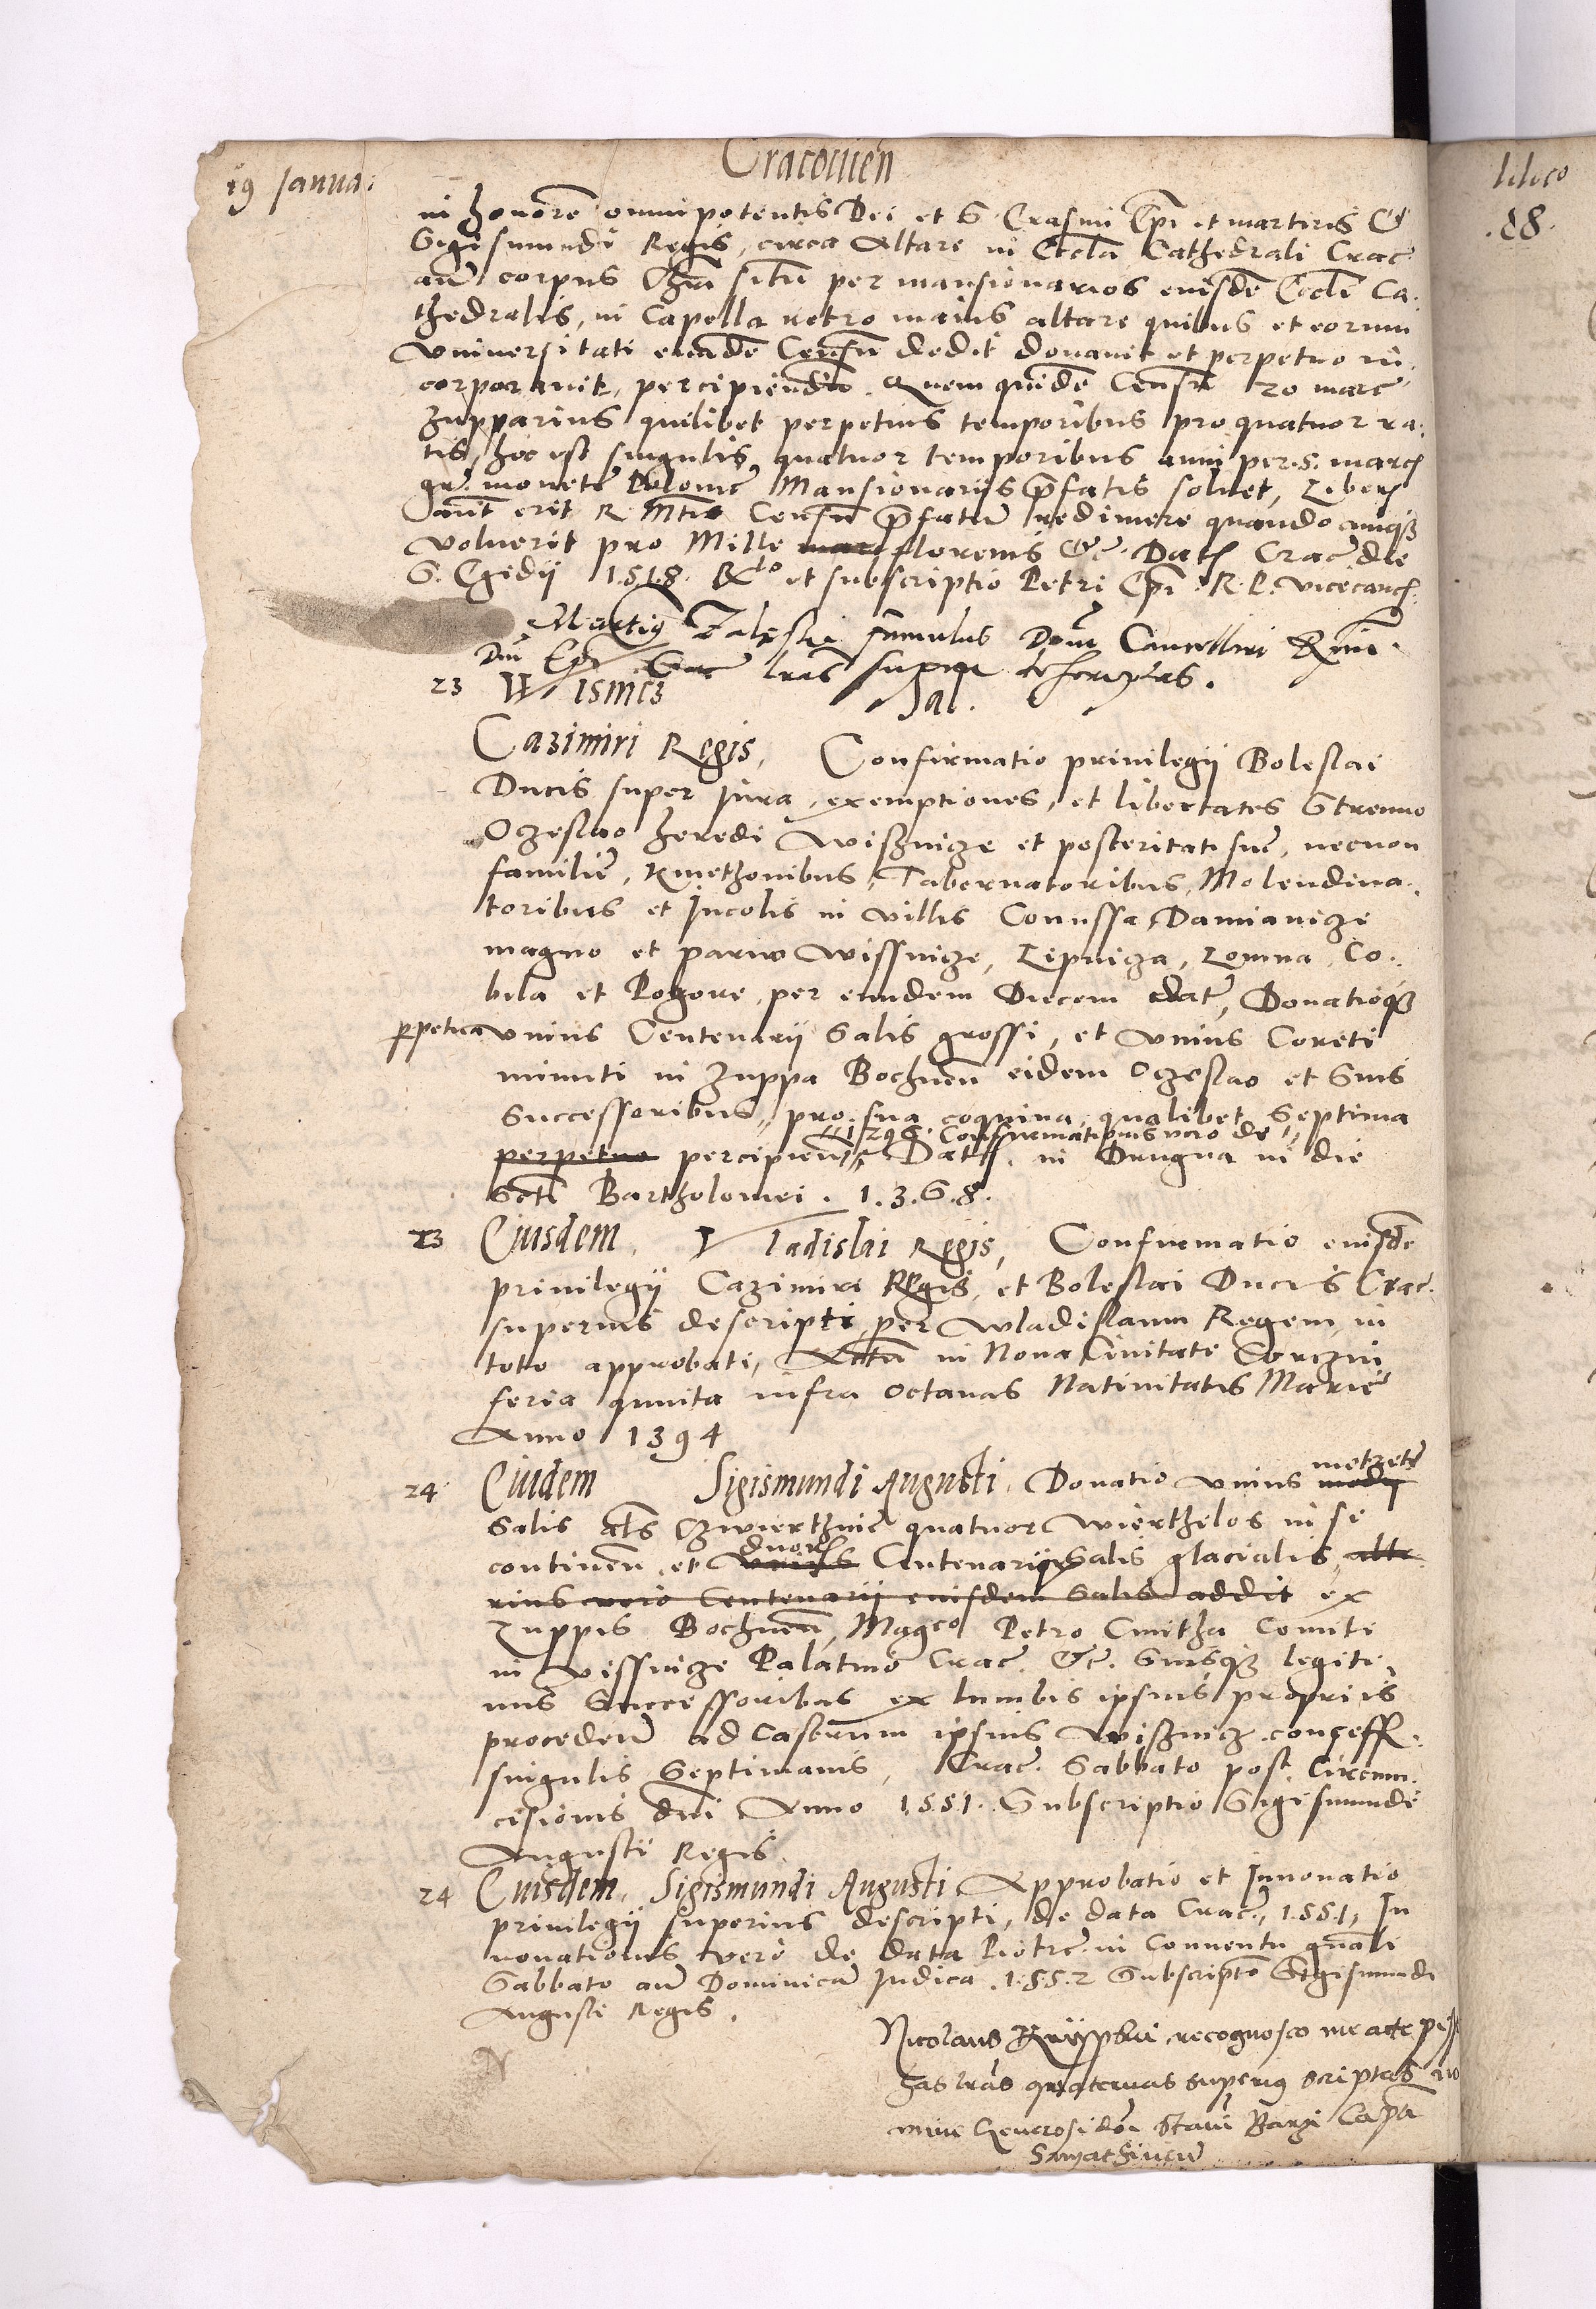 19 Janua:
Cracouien
in honorē omnipotentis Dei et S. Erasmi Ep̄i et martiris &
Sigismundi Regis, circa Altare in Eccl̄a Cathedrali Crac̄
an̄ corpus Chr̄i situ per mansionarios eiusdē Eccl̄e Ca-
thedralis, in Capella retro maius altare quibus et eorum
Vniuersitati eundē Censū dedit donauit et perpetuo in-
corporauit, percipiendū. Quem quidē Censū 20 marc̄
Zupparius quilibet perpetuis temporibus pro quatuor ra-
tis, hoc est singulis quatuor temporibus anni per .5. marcs
gr̄. monetę Polonicę Mansionariis p̄fatis soluet, Liberū
aūt erit R. Mtī Censū p̄fatū redimere quandocunq3
voluerit pro Mille florenis &c. Dats Crac̄ die
S. Egidij 1518. Rc̄to et subscriptio Petri Ep̄i R. P. vicecancs.
Martin9 Zaleski famulus Domī Cancellari Rm̄i
Dn̄i Ep̄i Crac̄ lrās supra descriptas.
23 Wismicz Sal.
Cazimiri Regis, Confirmatio priuilegij Boleslai
Ducis super jura, exemptiones, et libertates Strenuo
Oczeslao heredi Wisznicze et posteritati suę, necnon
familię, Kmethonibus, Tabernatoribus, Molendina-
toribus et Incolis in villis Conussa, Damianicze
magno et paruo Wissnicze, Lipnicza, Lomna, Co-
bila et Pogore, per eundem Ducem datę, Donatioq3
p̱petua vnius Centenarij Salis grossi, et vnius Coreti
minuti in Zuppa Bochnen̄ eidem Oczeslao et Suis
Successoribus, pro sua coquina, qualibet Septima
1298. Confirmationis vero de
perpetuo percipien̄ Dats. in Drugna in die
Scti Bartholomei. 1.3.5.8.
23 Eiusdem, Vladislai Regis, Confirmatio eiusdē
priuilegij Cazimiri Regis, et Boleslai Ducis Crac̄.
superius descripti, per Wladislaum Regem, in
toto approbati, Actū in Noua Ciuitate Corczin
feria quinta infra octauas Natiuitatis Marię
Anno 1394
24 Eiusdem Sigismundi Augusti. Donatio vnius metzetę
modij
Salis als Czwierthnie quatuor wierthelos in se
continen, et duorū vnius Centenarij Salis glacialis, alte-
rius vero Centenarij eiusdem Salis addit ex
Zuppis Bochnen̄, Mag̅co Petro Cmitha Comiti
in Vissnicze Palatino Crac̄. &c. Suisq3 legiti-
mis Successoribus ex lumbis ipsius propriis
proceden̄ ad Castrum ipsius Wisznicz concess.
singulis Septimanis, Crac̄. Sabbato post Circum-
cisionis dn̄i Anno 1551. Subscriptio Sigismundi
Augusti Regis.
24 Eiusdem, Sigismundi Augusti, Approbatio et Innouatio
priuilegij superius descripti, de data Crac̄., 1551, In
nouationis vero de data Piotrc̄. in Conuentu gn̄ali
Sabbato an̄ Dominicā Iudica .1552 Subscriptō Sigismundi
Augusti Regis.
Nicolaus recognosco me
has lrās quaternas superi9 scriptas no
mine Generosi dn̄i Stanī Barzi Capā
N
lileco
.88.